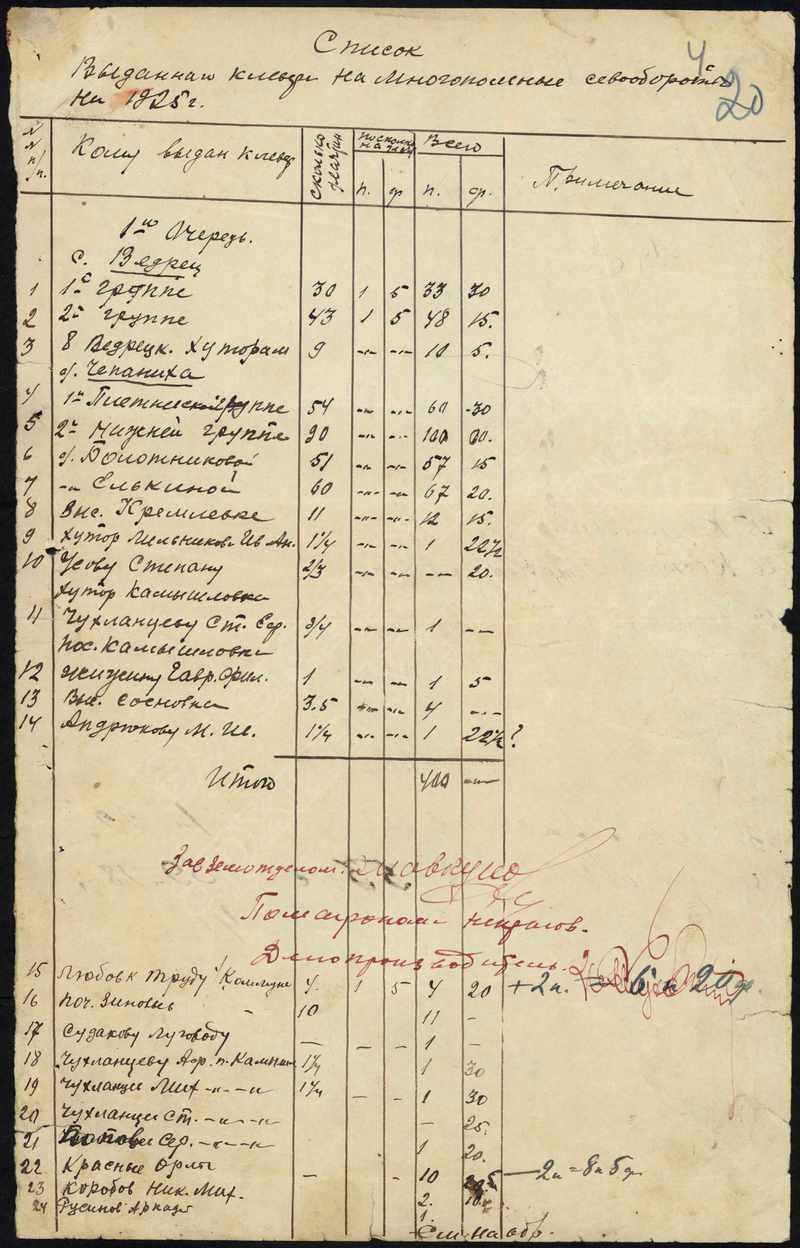 4
20
Список
Выданная клевера на многопольные севообороты
на 1925 г.
№№ п/п. Кому выдан клевер сколько На Всего Примечание
п. ф п. ф.
1ая Очередь.
с. Ведрец
1 1ой группе 30 1 5 33 30
2 2ой группе 43 1 5 48 15.
3 8 Ведрецк. Хуторам 9 -"- -"- 10 5.
д. Чепаниха
4 1ой группе 54 -"- -"- 60 30
5 2ой Нижней группе 90 -"- -"- 100 00.
6 д. Болотниковой 51 -"- -"- 57 15
7 -"- Елькиной 60 -"- -"- 67 20.
8 Выс. Кремлевке 11 -"- -"- 12 15.
9 Хутор Мельников Ив. Ан. 1 1/4 -"- -"- 1 22 1/2
10 Усову Степану 2/3 -"- -"- -"- 20.
Хутор Камышловка
11 Чухланцеву Ст. Сер. 3/4 -"- -"- 1 -"-
пос. Камышловка
12 Гавр. Фил. 1 -"- -"- 1 5
13 Выс. Сосновка 3.5 -"- -"- 4 -"-
14 Андрюкову М. Ив. 1 1/4 -"- -"- 1 22 1/2 ?
Итого 400 -"-
Зав Земотделом:
Помагроном Некрасов.
Делопроизводитель.
15 Любовь к труду Коммуне 4. 1 5 4 20 +2п. = 6 п 20 ф.
16 Поч. Зиновьв 10 11 -
17 Судакову Луговоду — - - 1 -
18 Чухланцеву Афр. п. Камыш 1 1/4 1 30
19 Чухланцев Мих -"- -"- 1 1/4 - - 1 30
20 Чухланцев Ст. -"- -"- - 25.
21 Попов Сер. -"- -"- 1 20.
22 Красные Орлы - - 10 5 — 2п = 8п 5 ф.
23 Коробов Ник. Мих. 2. 10
24 Русинов Аркадий 1.
См. на обр.